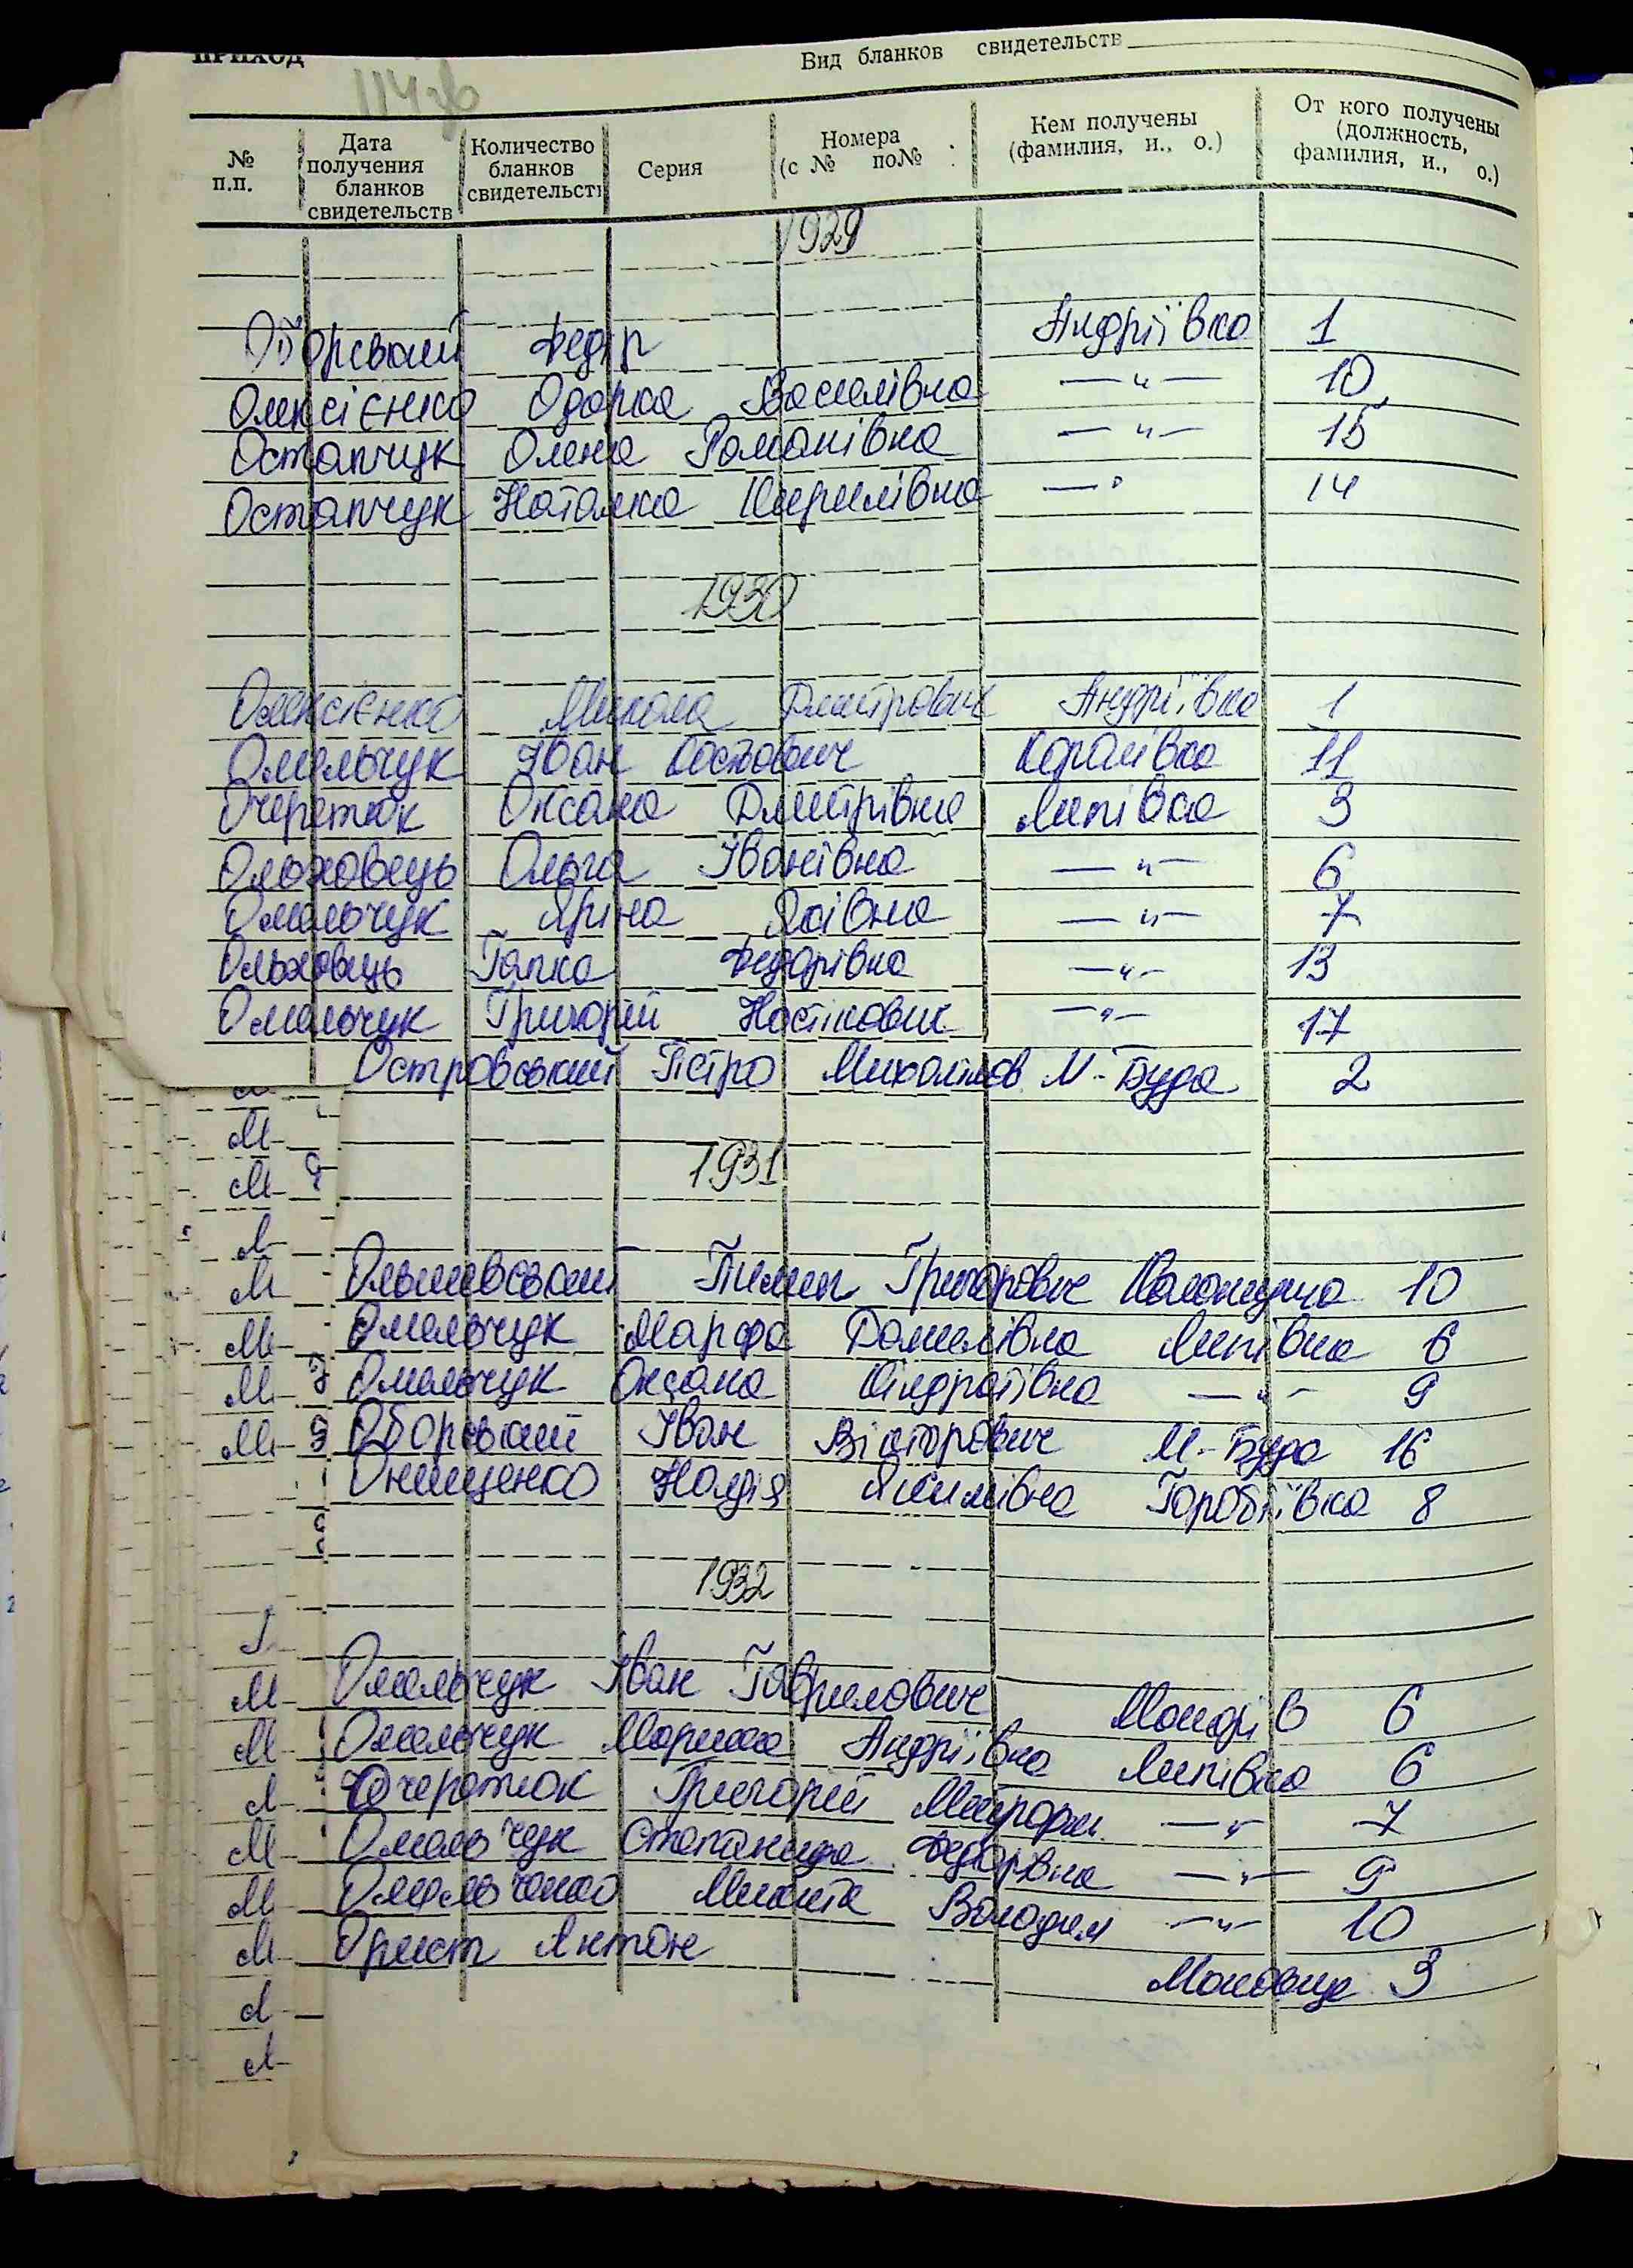 ПРИХОД
Вид бланков свидетельств
114 зв
№ п.п.
Дата получения бланков свидетельств
Количество бланков свидетельств
Серия
Номера (с № по№
Кем получены (фамилия, и., о.)
От кого получены (должность, фамилия, и., о.)
1929
Оборський Федір Андріївка 1
Олексієнко Одарка Василівна —"— 10
Остапчук Олена Романівна —"— 15
Остапчук Наталка Кирилівна —" 14
1930
Олексієнко Микола Дмитрович Андріївка 1
Омельчук Іван Королівка 11
Очеретюк Оксана Дмитрівна Липівка 3
Ольховець Ольга Іванівна —"— 6
Омельчук Яріна —"— 7
Ольховець Гапка Федорівна —"— 13
Омельчук Григорій Костікович —"— 17
Островський Пєтро Михайлов М-Буда 2
1931
Ольшевський Пилип Григорович 10
Омельчук Марфа Данилівна Липівка 6
Омельчук Оксана Кіндратівна —"— 9
Оборський Іван Вікторович М-Буда 16
Онищенко Надія Якимівна Горобіївка 8
1932
Омельчук Іван Гаврилович Макарів 6
Омельчук Марика Андріївна Липівка 6
Очеретюк Григорій Митрофан. —"— 7
Омельчук Степанида Федорівна —"— 9
Омельченко Микита Володим —"— 10
Орист Антон Маковище 3